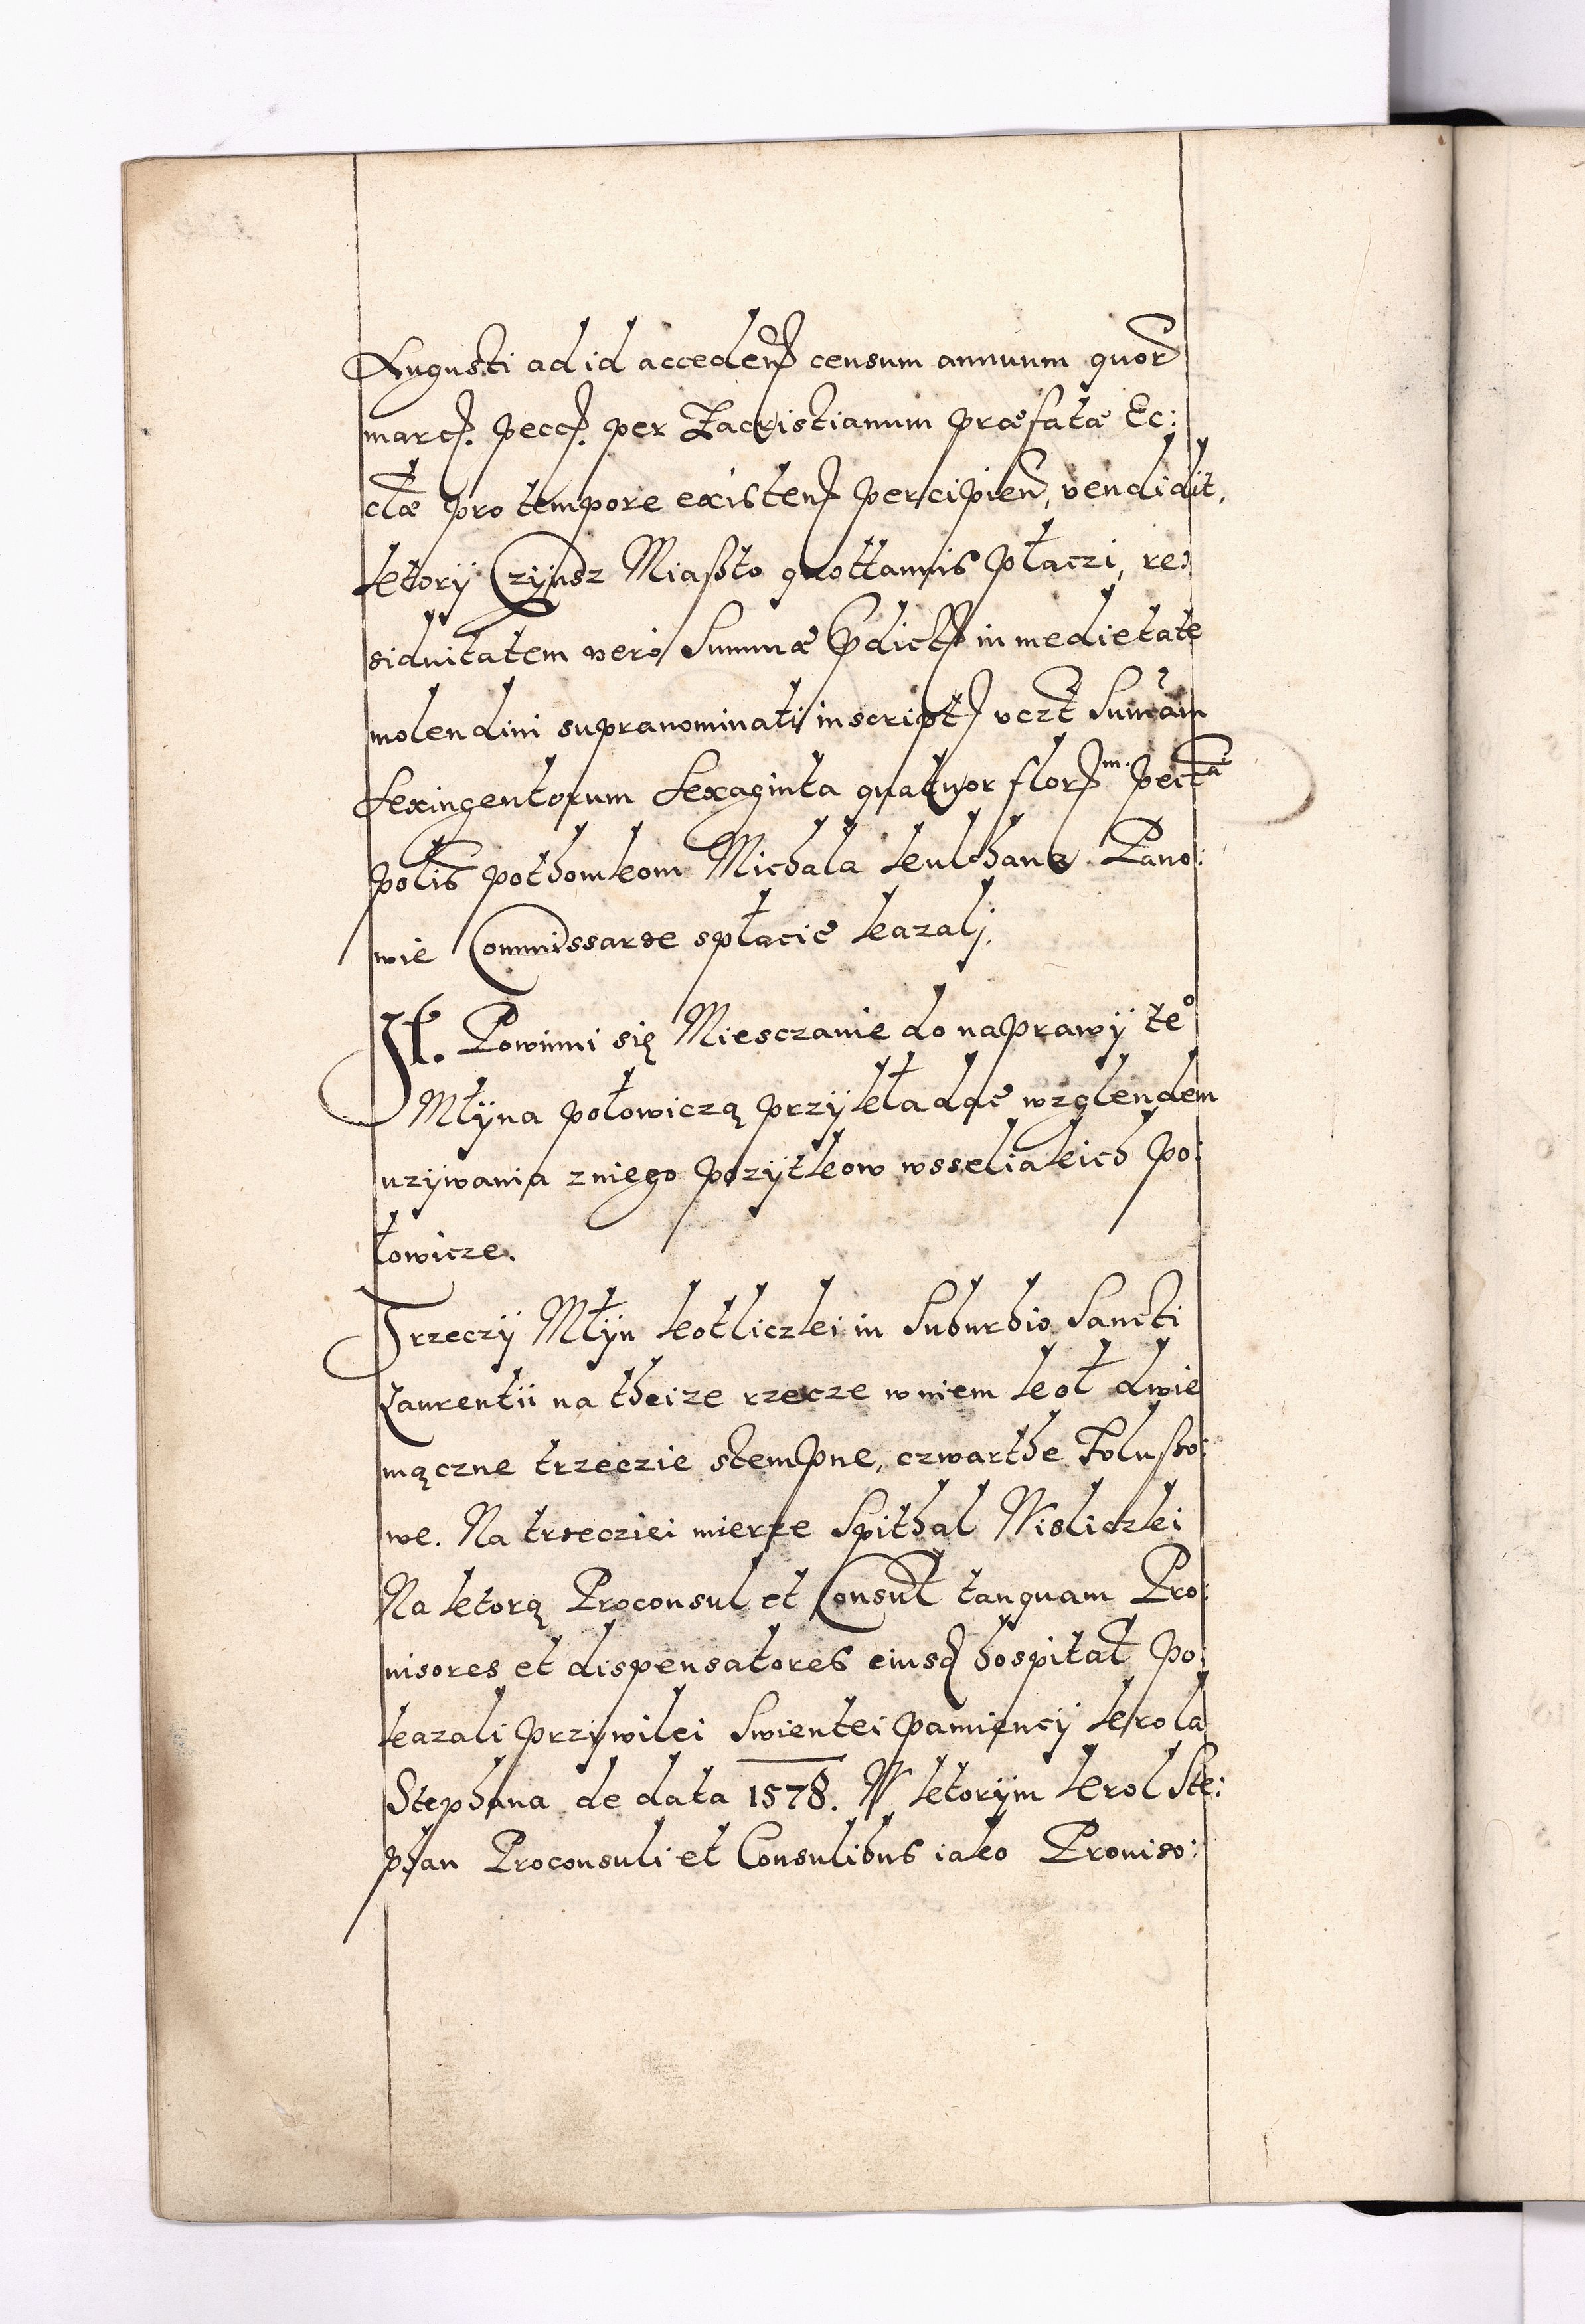 Augusti ad id acceden censum annuum quor
marc. pecc. per Zacristianum præfatæ Ec:
clæ pro tempore existen percipien, vendidit,
ktory Czynsz Miaſsto quottannis płaczi, re:
siduitatem vero Summæ pdict in medietate
molendini supranominati inscript vczt Sumam
Sexingentorum Sexaginta quatuor flor m. pecta
polis pothomkom Michala kulchana Pano:
wie Commissarze spłacić kazalj.
It. Powinni się Miesczanie do naprawy te°
Młyna połowiczą przykładać wzglendem
uzywania z niego pozytkow wsseliakich po:
łowicze.
Trzeczy Młyn kotliczki in Suburbio Sancti
Laurentii na theize rzecze w niem koł dwie
mączne trzeczie stempne, czwarthe Foluſso:
we. Na trzecziei mierze Spithal Wisliczki
Na ktorą Proconsul et Consul tanquam Pro:
uisores et dispensatores eiusd hospital po:
kazali przywilei Swientei pamięncy krola
Stephana de data 1578. W ktorym krol Ste:
phan Proconsuli et Consulibus iako Prouiso: